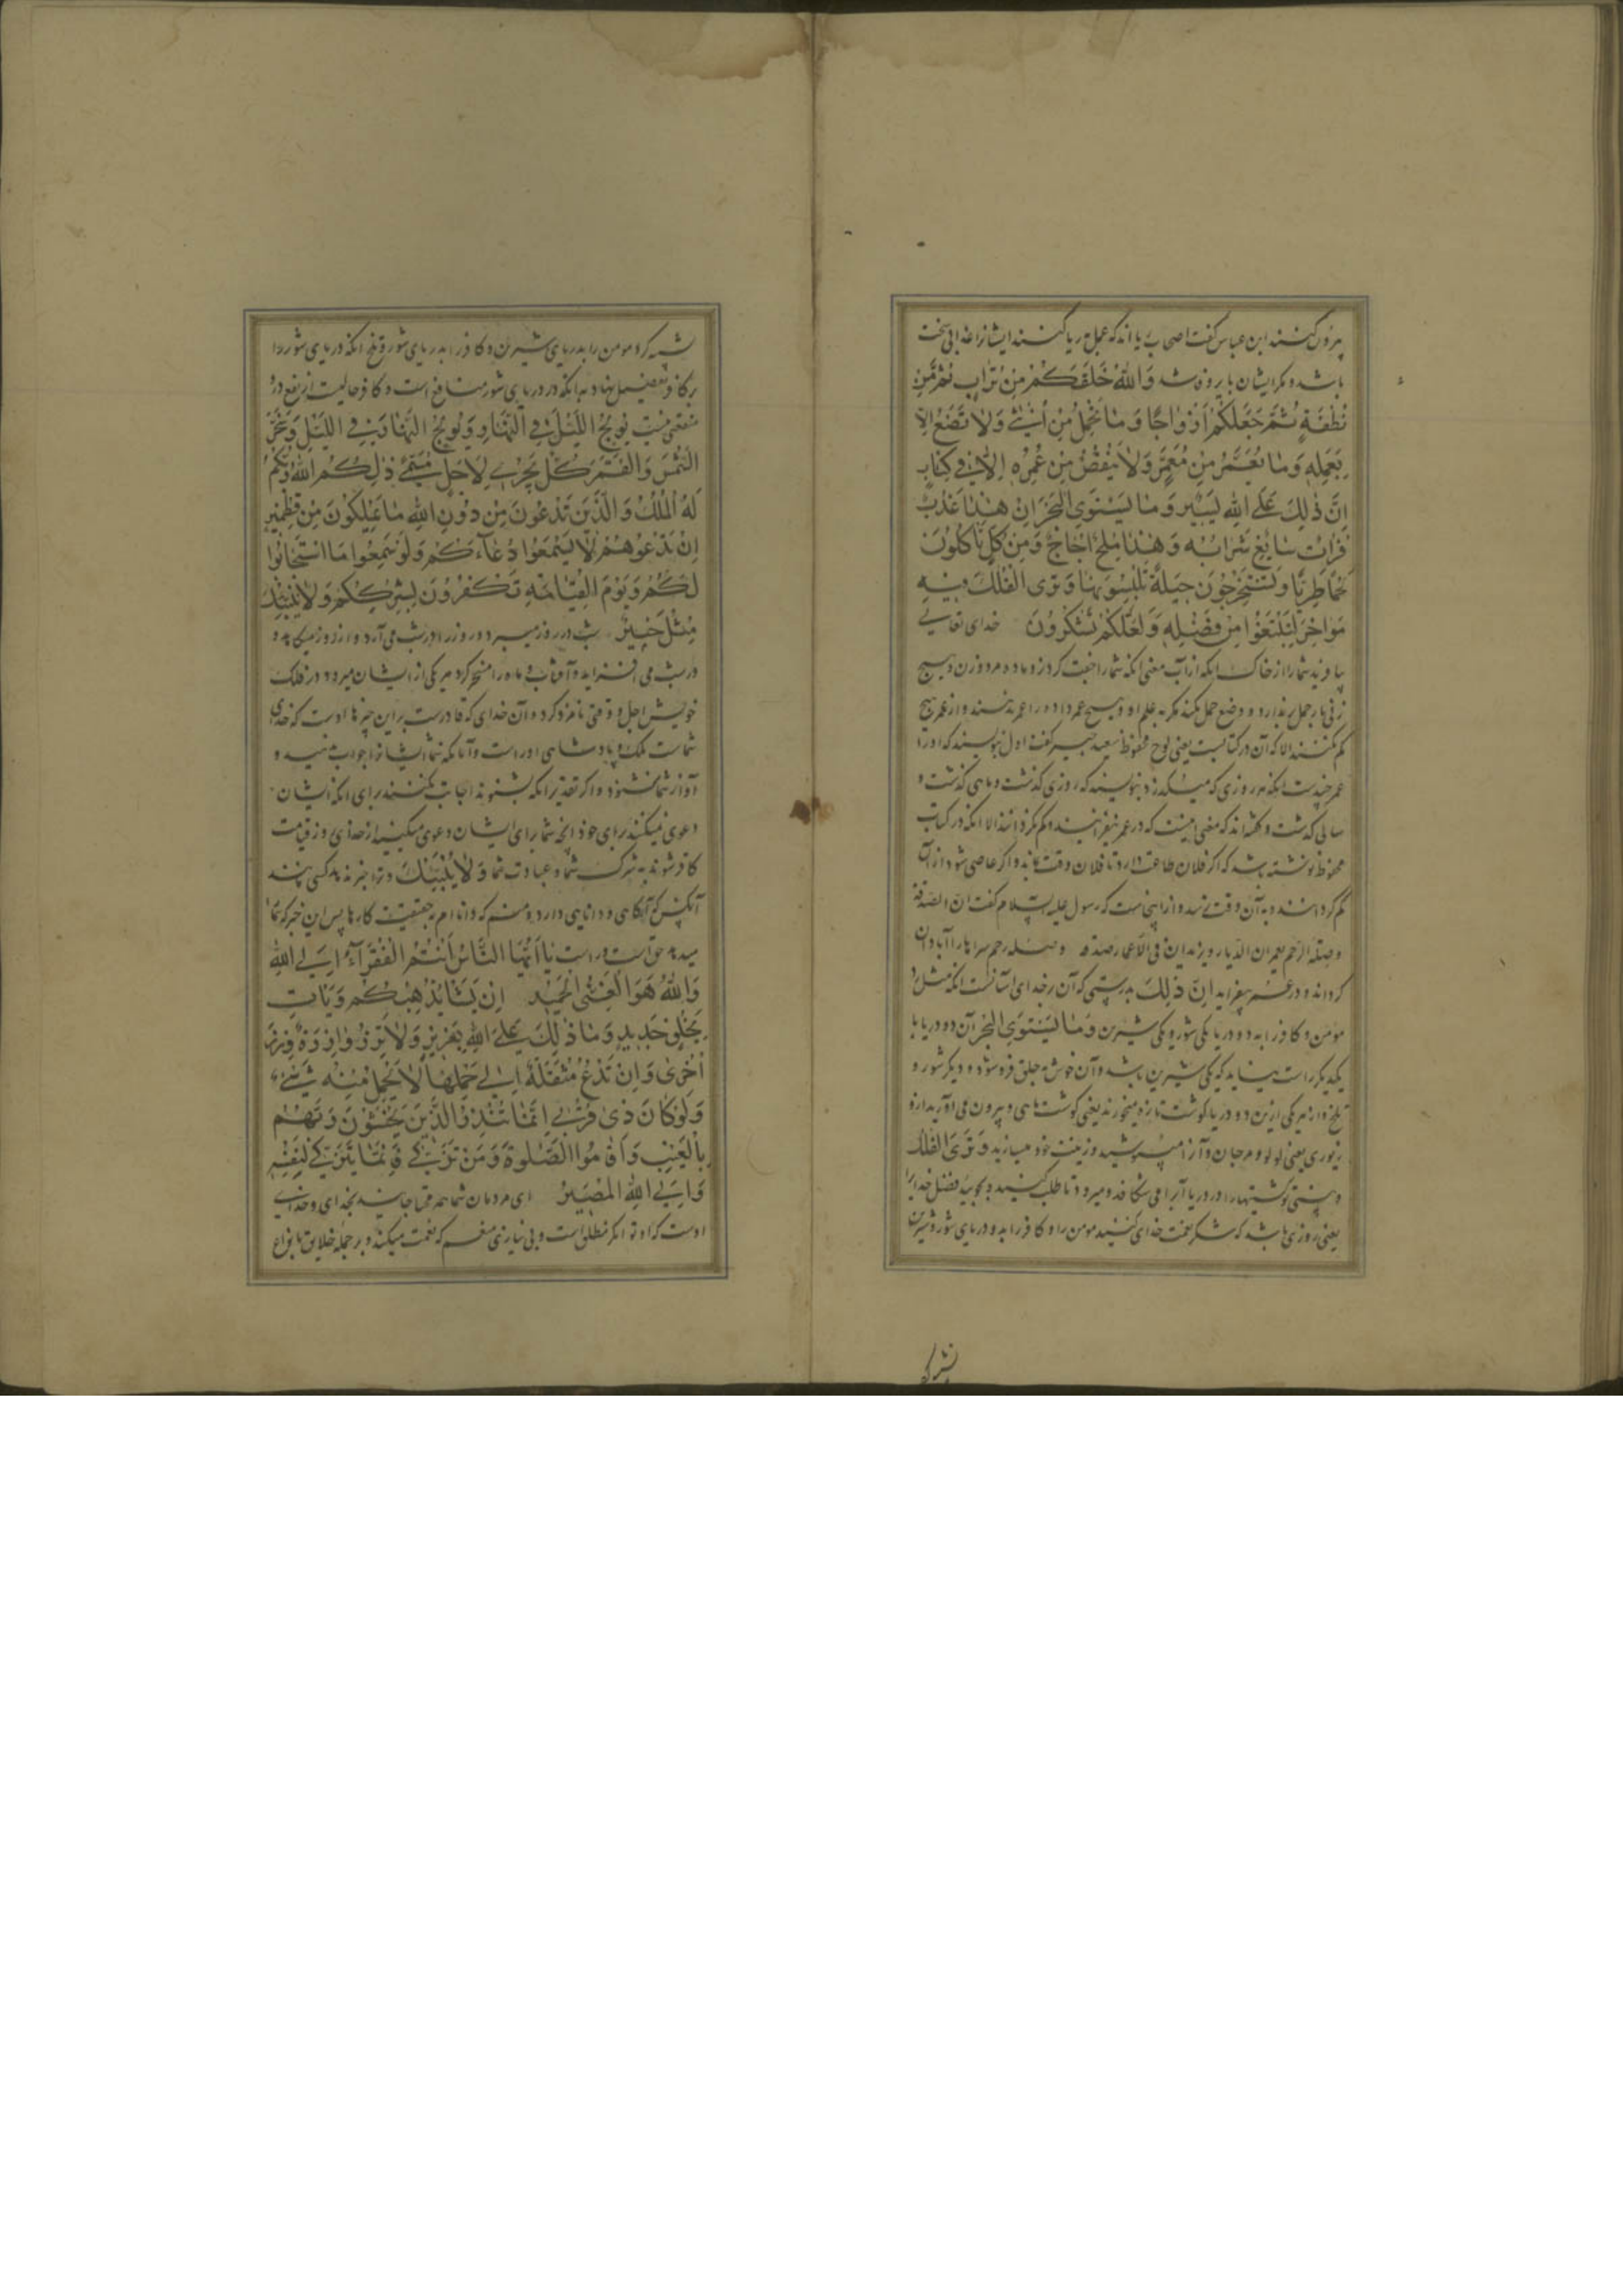 بیرون کنند ابن عباس گفت اصحاب ریا اند که عمل بریا کنند ایشانرا عذابی سخت
باشد و مکر ایشان باطل شد وَاللهُ خَلَقَكُمْ مِنْ تُرَابٍ ثُمَّ مِنْ
نُطْفَةٍ ثُمَّ جَعَلَكُمْ أَزْوَاجًا وَمَا تَحْمِلُ مِنْ أُنْثَى وَلَا تَضَعُ إِلَّا
بِعِلْمِهِ وَمَا يُعَمَّرُ مِنْ مُعَمَّرٍ وَلَا يُنْقَصُ مِنْ عُمُرِهِ إِلَّا فِي كِتَابٍ
إِنَّ ذٰلِكَ عَلَى اللهِ يَسِيرٌ وَمَا يَسْتَوِي الْبَحْرَانِ هٰذَا عَذْبٌ
فُرَاتٌ سَائِغٌ شَرَابُهُ وَهٰذَا مِلْحٌ أُجَاجٌ وَمِنْ كُلٍّ تَأْكُلُونَ
لَحْمًا طَرِيًّا وَتَسْتَخْرِجُونَ حِلْيَةً تَلْبَسُونَهَا وَتَرَى الْفُلْكَ فِيهِ
مَوَاخِرَ لِتَبْتَغُوا مِنْ فَضْلِهِ وَلَعَلَّكُمْ تَشْكُرُونَ خدای تعالی
بیافرید شما را از خاک انکه از آب معنی انکه شما را جفت کرد نر و ماده مرد و زن و هیچ
زنی بار حمل برندارد و وضع حمل نکند مگر به علم او و هیچ عمر داده را عمر ندهند و از عمر هیچ
کم نکنند الا که آن در کتابیست یعنی لوح محفوظ سعید جبیر گفت اول بنویسند که او را
عمر چندست انکه هر روزی که میگذرد بنویسند که روزی گذشت و ماهی گذشت و
سالی گذشت و گفته اند که معنی اینست که در عمر نیفزایند و کم نگردانند الا انکه در کتاب
محفوظ نوشته باشد که اگر فلان طاعت دارد تا فلان وقت بماند و اگر عاصی شود از آن
کم گردانند و به آن وقت نرسد و از اینجاست که رسول علیه السلام گفت ان الصدقة
وصلة الرحم یعمران الدیار ویزیدان فی الاعمار صدقه وصله رحم سراها را آبادان
گرداند و در عمر بیفزاید إِنَّ ذٰلِكَ بدرستی که آن بر خدای آسانست انکه مثل زد
مومن و کافر را به دو دریا یکی شور و یکی شیرین وَمَا يَسْتَوِي الْبَحْرَانِ دو دریا با
یکدیگر راست نیایند که یکی شیرین باشد و آن خوش به حلق فرو شود و دیگر شور و
تلخ و از هر یکی ازین دو دریا گوشت تازه میخورند یعنی گوشت ماهی و بیرون می آورید ازو
زیوری یعنی لولو و مرجان و آنرا میپوشید و زینت خود میسازید وَتَرَى الْفُلْكَ
و بینی کشتیها را در دریا آبرا می شکافد و میرود تا طلب کنید و بجویید فضل خدایرا
یعنی روزی باشد که شکر نعمت خدای کنید مومن را و کافر را به دو دریای شور و شیرین
تشبیه کرد مومن را بدریای شیرین و کافر را بدریای شور و تلخ انکه دریای شور را
بر کافر تفضیل نهاد به انکه در دریای شور منافع است و کافر خالیست از نفع درو
منفعتی نیست يُولِجُ اللَّيْلَ فِي النَّهَارِ وَيُولِجُ النَّهَارَ فِي اللَّيْلِ وَسَخَّرَ
الشَّمْسَ وَالْقَمَرَ كُلٌّ يَجْرِي لِأَجَلٍ مُسَمًّى ذٰلِكُمُ اللهُ رَبُّكُمْ
لَهُ الْمُلْكُ وَالَّذِينَ تَدْعُونَ مِنْ دُونِ اللهِ مَا يَمْلِكُونَ مِنْ قِطْمِيرٍ
إِنْ تَدْعُوهُمْ لَا يَسْمَعُوا دُعَاءَكُمْ وَلَوْ سَمِعُوا مَا اسْتَجَابُوا
لَكُمْ وَيَوْمَ الْقِيَامَةِ تَكْفُرُونَ بِشِرْكِكُمْ وَلَا يُنَبِّئُكَ
مِثْلُ خَبِيرٍ شب در روز میبرد و روز را در شب می آرد و از روز میکاهد و
در شب می افزاید و آفتاب و ماه را مسخر کرد هر یکی از ایشان میرود در فلک
خویش اجل و وقتی نامزد کرده آن خدای که قادرست بر این چیزها اوست که خدای
شماست ملک و پادشاهی اوراست و آنانکه شما ایشانرا جواب نمیدهند و
آواز شما نشنوند و اگر تقدیر انکه بشنوند اجابت نکنند برای انکه ایشان
دعوی نمیکنند برای خود انچه شما برای ایشان دعوی میکنید از خدای و روز قیامت
کافر شوند به شرک شما و عبادت شما وَلَا يُنَبِّئُكَ و ترا خبر ندهد کسی مانند
آنکس که آگاهی و دانایی دارد و منم که دانا ام به حقیقت کارها پس این خبر که ترا
میدهم حق است و راست يَا أَيُّهَا النَّاسُ أَنْتُمُ الْفُقَرَاءُ إِلَى اللهِ
وَاللهُ هُوَ الْغَنِيُّ الْحَمِيدُ إِنْ يَشَأْ يُذْهِبْكُمْ وَيَأْتِ
بِخَلْقٍ جَدِيدٍ وَمَا ذٰلِكَ عَلَى اللهِ بِعَزِيزٍ وَلَا تَزِرُ وَازِرَةٌ وِزْرَ
أُخْرَى وَإِنْ تَدْعُ مُثْقَلَةٌ إِلَى حِمْلِهَا لَا يُحْمَلْ مِنْهُ شَيْءٌ
وَلَوْ كَانَ ذَا قُرْبَى إِنَّمَا تُنْذِرُ الَّذِينَ يَخْشَوْنَ رَبَّهُمْ
بِالْغَيْبِ وَأَقَامُوا الصَّلٰوةَ وَمَنْ تَزَكَّى فَإِنَّمَا يَتَزَكَّى لِنَفْسِهِ
وَإِلَى اللهِ الْمَصِيرُ ای مردمان شما همه محتاجانید بخدای و خدای
اوست که او توانگر مطلق است و بی نیاز منعم که نعمت میکند بر جمله خلایق بانواع